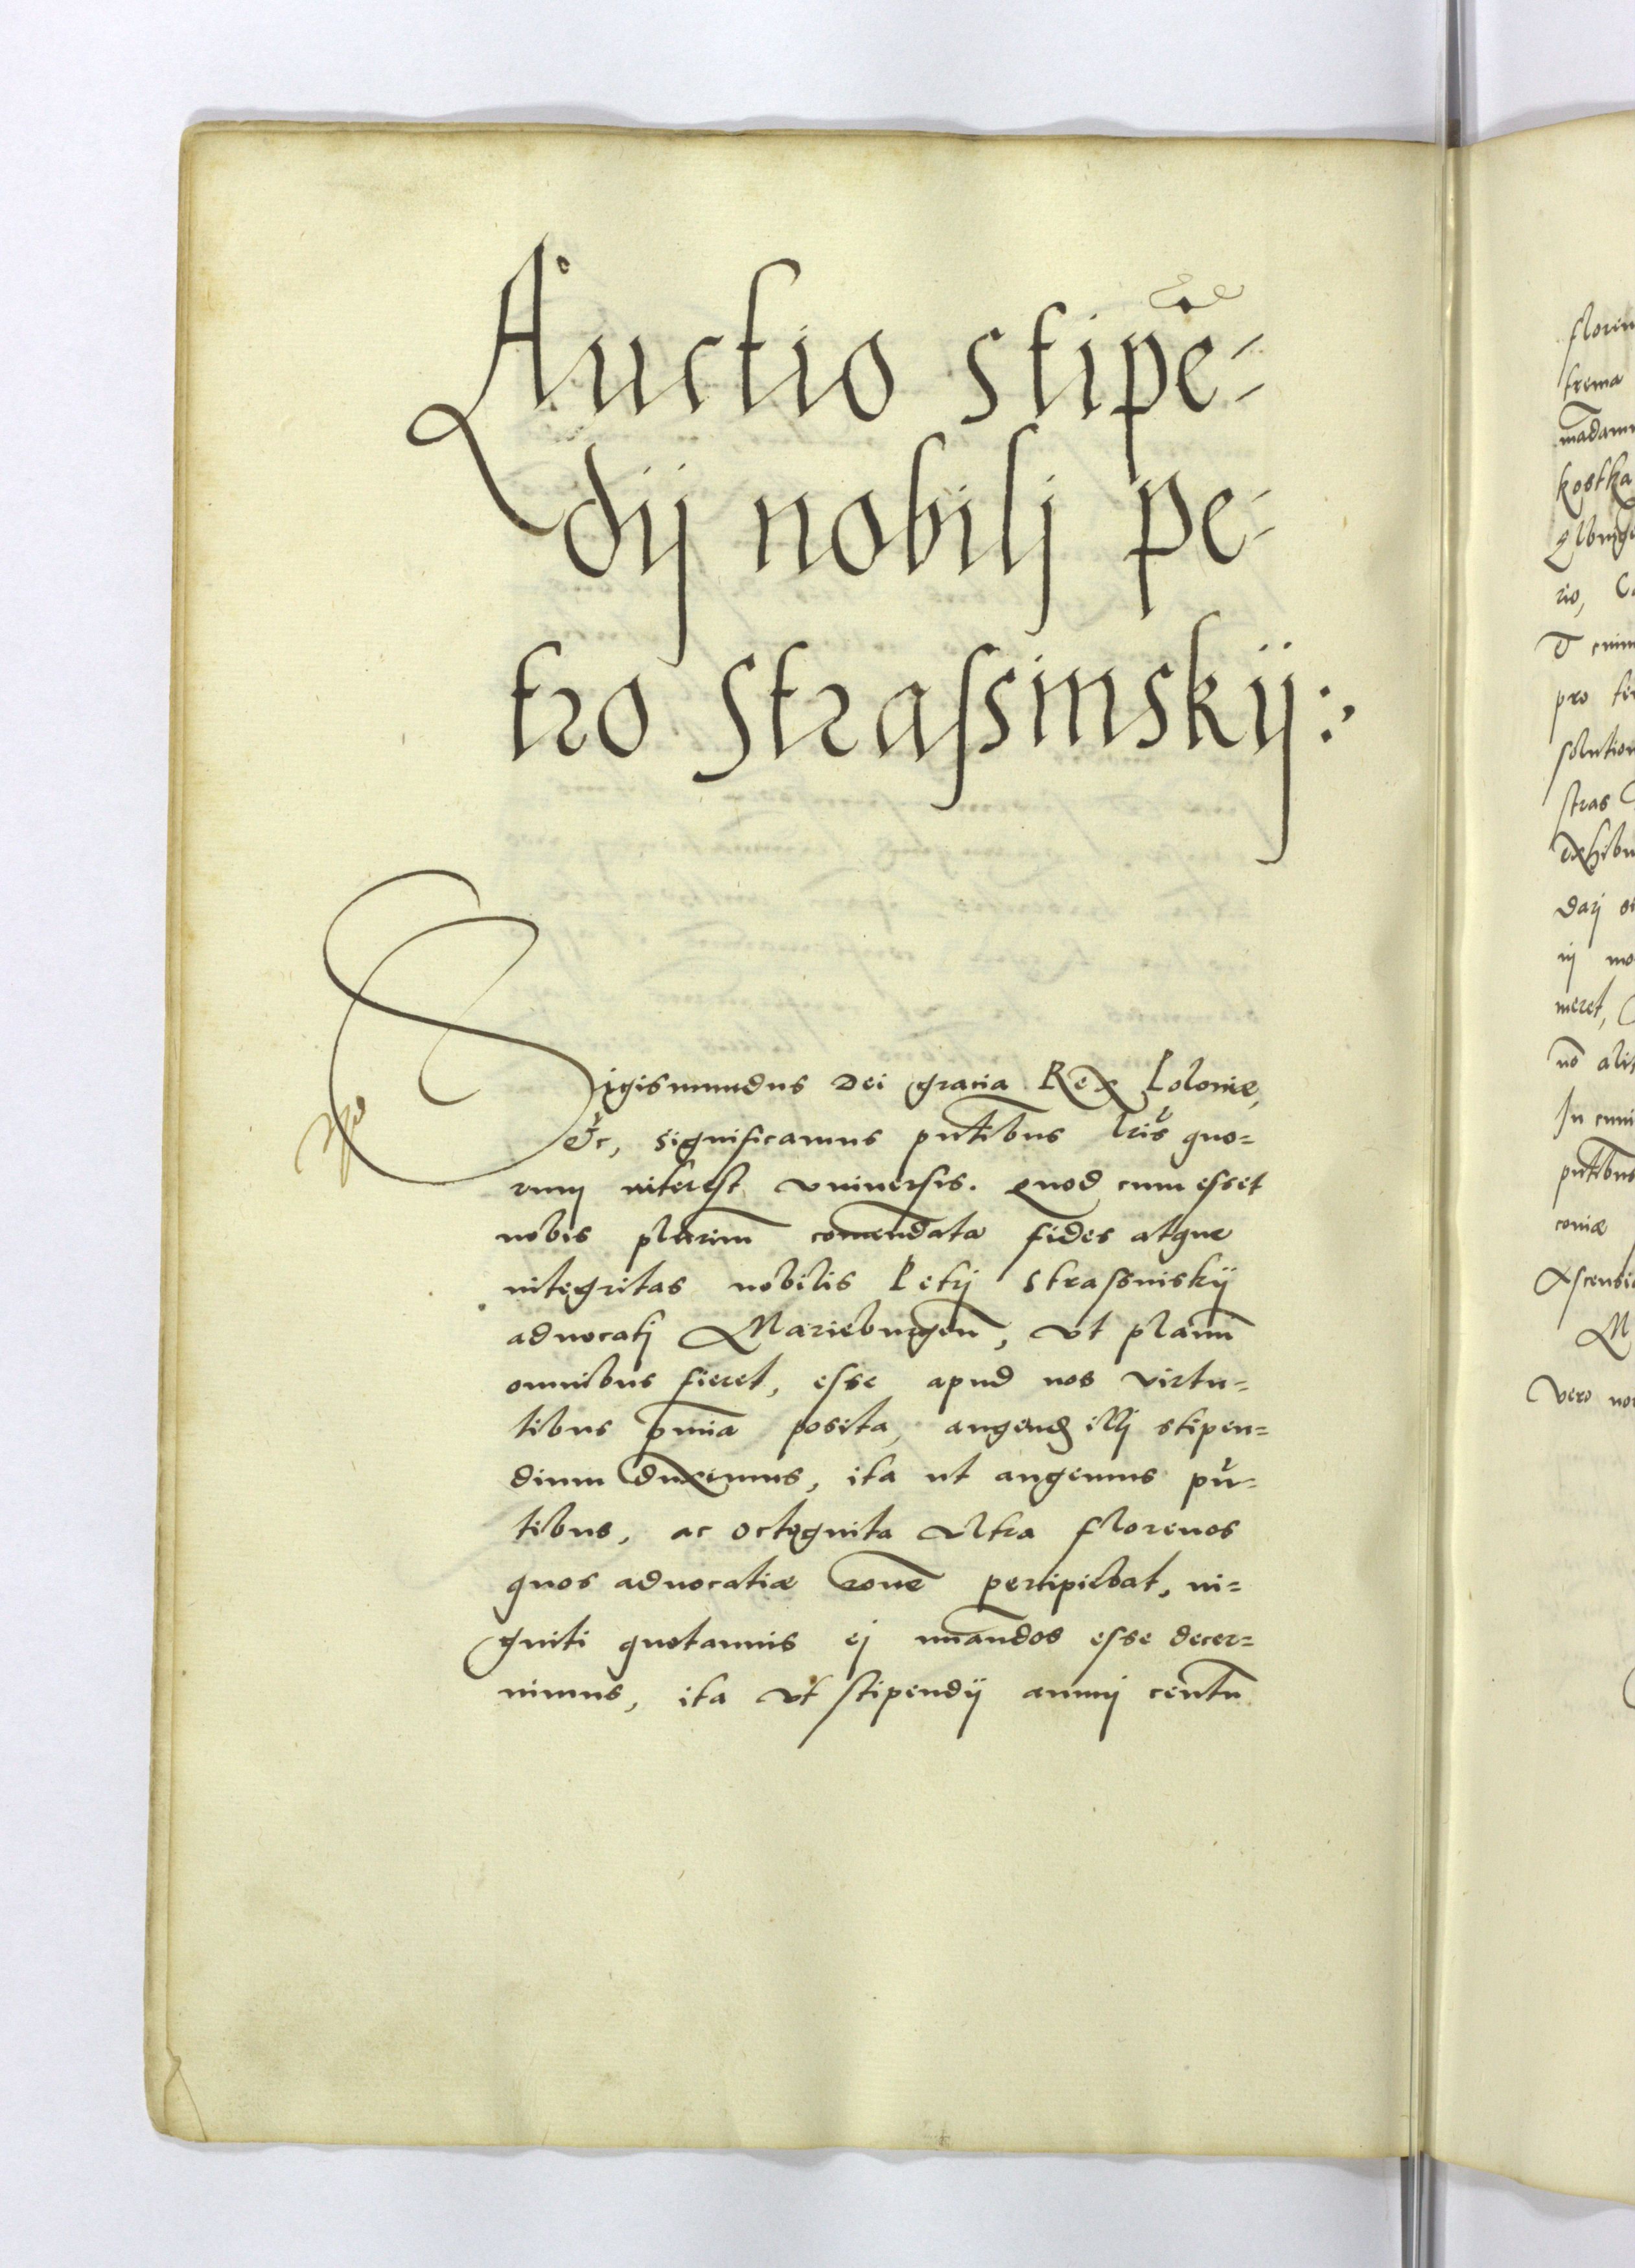 Auctio stipē-
dij nobilj pe-
tro Strassinskij:
Sigismundus Dei gracia Rex Poloniæ,
&c, significamus pn̄tibus lr̄is quo=
rum interest vniuersis. Quod cum esset
nobis plurim̄ com̄endata fides atque
integritas nobilis Petrj Strassinskij
aduocatj Marieburgen̄, vt planū
omnibus fieret, esse apud nos virtu=
tibus p̄mia posita, augend illj stipen=
dium duximus, ita ut augemus pn̄=
tibus, ac octoginta vltra florenos
quos aduocatiæ rōne percipiebat, vi=
ginti quotannis ej nūandos esse decer=
nimus, ita vt stipendij annuj centū
floren
trema
kostka
rio,
T enim
pro
solution
stras
Exhibu
darj
ij
meret,
nō
In cuius
pn̄tibus
coniæ
Ascensi
M
vero